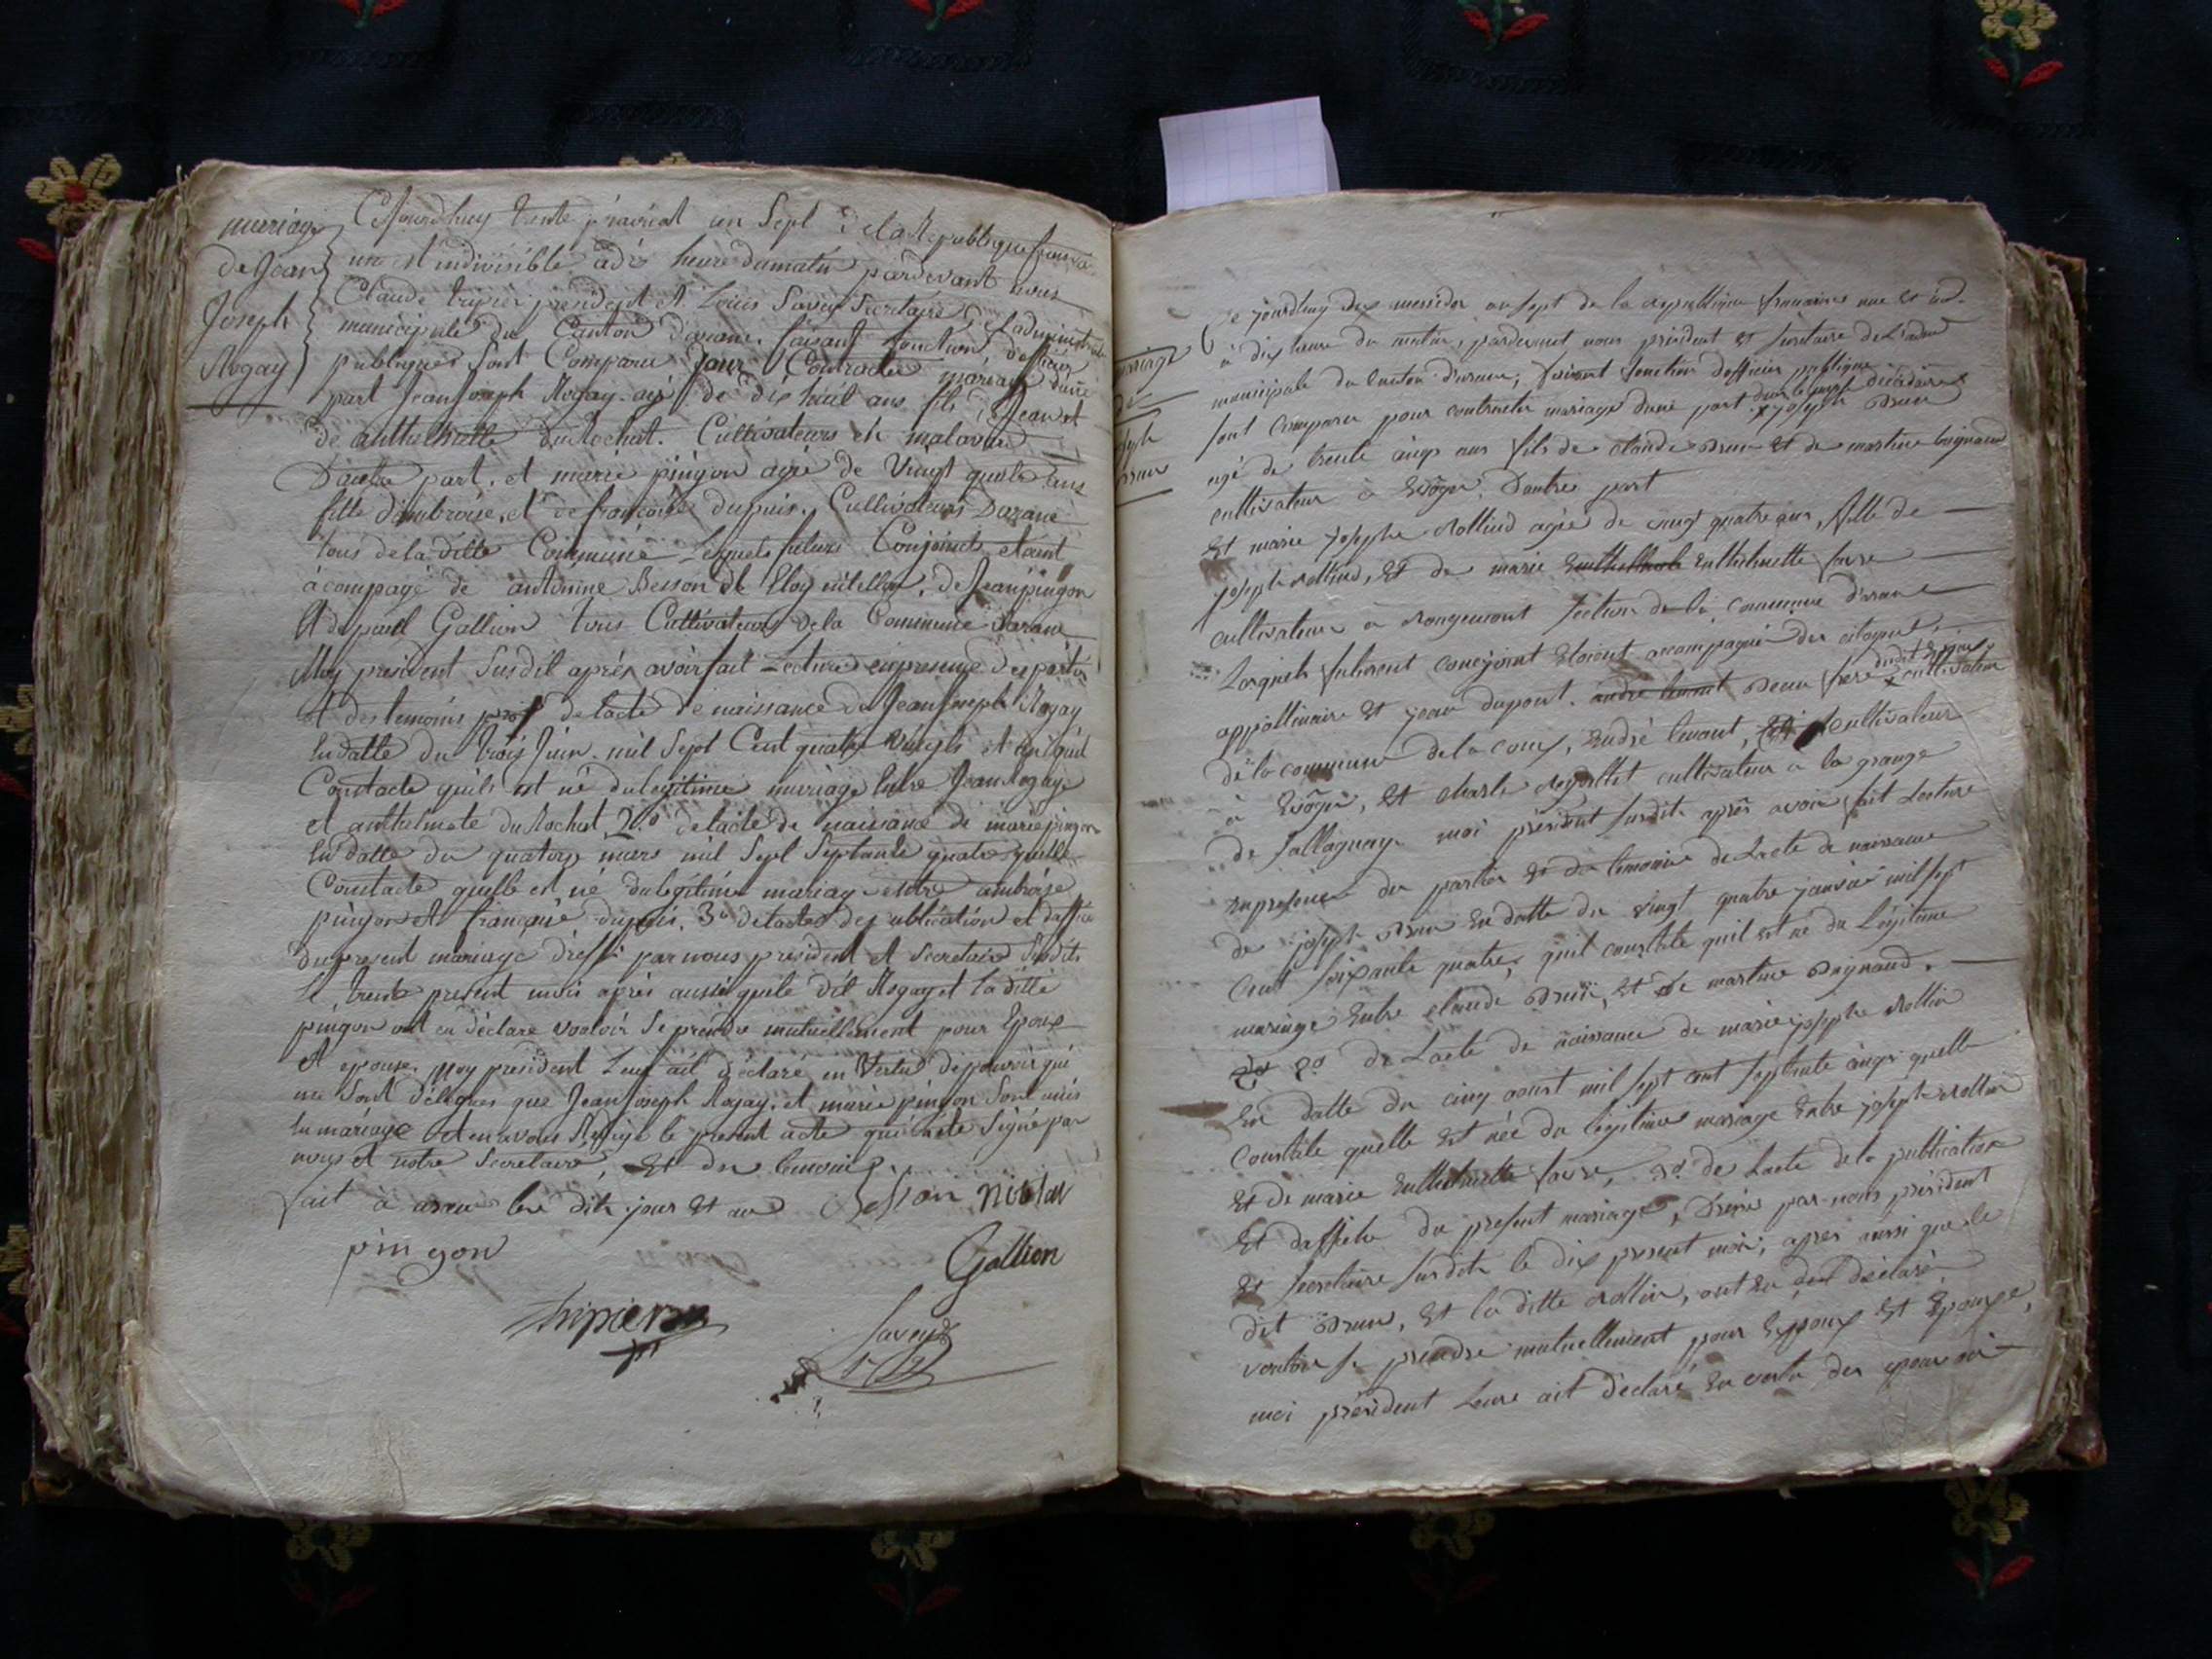 mariage
de Jean
Joseph
Rogay
Cejourdhuy trente prairial an Sept de la Republique francai
une et indivisible a dix heure dumatin pardevant nous
Claude tripier president et Louis Savey Secretaire de Ladministra
municipale du Canton d'arane faisant fonction d'officier
publique Sont Comparu pour Contracter mariage d'une
part Jean Joseph Rogay agé de dix huit ans fils de Jean et
de anthelmette du Rochat. Cultivateurs en malaval
D'autre part, et marie pingon agée de Vingt quatre ans
fille d'ambroise, et de francoise dupuis. Cultivateurs Darane
tous de la ditte Commune Lesquels futurs Conjoints etoint
àcompagé de antoinne Besson de Eloy de Jean pingon
et de paul Gallion tous Cultivateurs de la Commune darane
Moy president Susdit après avoir fait Lecture en presence des partie
et des temoins de lacte de naissance de Jean Joseph Rogay
En datte du trois Juin mil Sept Cent quatre vingts et un quil
Constacte quils est né du legitime mariage Entre Jean Rogay
et anthelmete du Rochat, 2.o de lacte de naissance de marie pingon
En datte du quatorze mars mil Sept Septante quatre quelle
Constacte quelle est né du legitime mariage entre ambroise
pingon et francoise dupuis. 3.o de lactes de publication et daffice
du present mariage dressé par nous president et Secretaire Susdits
le trente present mois après aussi que le dit Rogay et la ditte
pingon ont eu déclaré vouloir Se prendre mutuellement pour Epoux
et epouse, Moy president Leur ait déclaré en Vertu de pouvoir qui
me Sont délégués que Jean Joseph Rogay, et marie pingon Sont unis
En mariage et en avons Redigé le present acte qui a été Signé par
nous et notre Secretaire, Et du temoins
fait à arane les dits jour Et an Besson Nicolas
pingon Gallion
tripier
Savey
mariage
de
joseph
Brun
Ce jourdhuy dix messidor an sept de la republique francaise une et ind.
à dix heure du matin, pardevant nous président et secretaire de Ladm
municipale du Canton d'arane, faisant fonction dofficier publique
dans le temple décadaire
sont comparu pour contracter mariage dune part x joseph Brun
agé de trente cinq ans fils de claude Brun et de martine boignaud
cultivateur à Evôges, Dautres part
Et marie josephe Rollind agée de vingt quatre ans, fille de
joseph Rollind, Et de marie Enthelmette favre
cultivateur à Rougemont section de la commune d'arane
Lesquels futurent conjoint Etoient accompagné des citoyens
dudit Evôges
appollinaire Et jean dupont. andré Brun frere x cultivateur
de la commune de la coux, André , cultivateur
à Evôges, Et charle cultivateur a la grange
de moi président susdit après avoir fait Lecture
enpresence des parties Et des temoins de Lacte de naissance
de joseph Brun En datte du vingt quatre janvier mil sept
Cent soixante quatre, quil constate quil est né du Légitime
mariage Entre claude Brun, Et de martine Boignaud.
2.o de Lacte de naissance de marie josephe Rollin
En datte du cinq aoust mil sept cent septente cinq quelle
Constate quelle est née du légitime mariage Entre joseph Rollin
Et de marie Enthelmette favre, 3.o de Lacte de la publication
Et daffiche du present mariage, Dréssé par nous président
Et secretaire susdits le dix present mois, apres aussi que le
dit Brun, Et la ditte Rollin, ont Eu déclaré
vouloir se prendre mutuellement pour Epoux Et Epouse,
moi président Leure ait déclaré En vertu des pouvoir